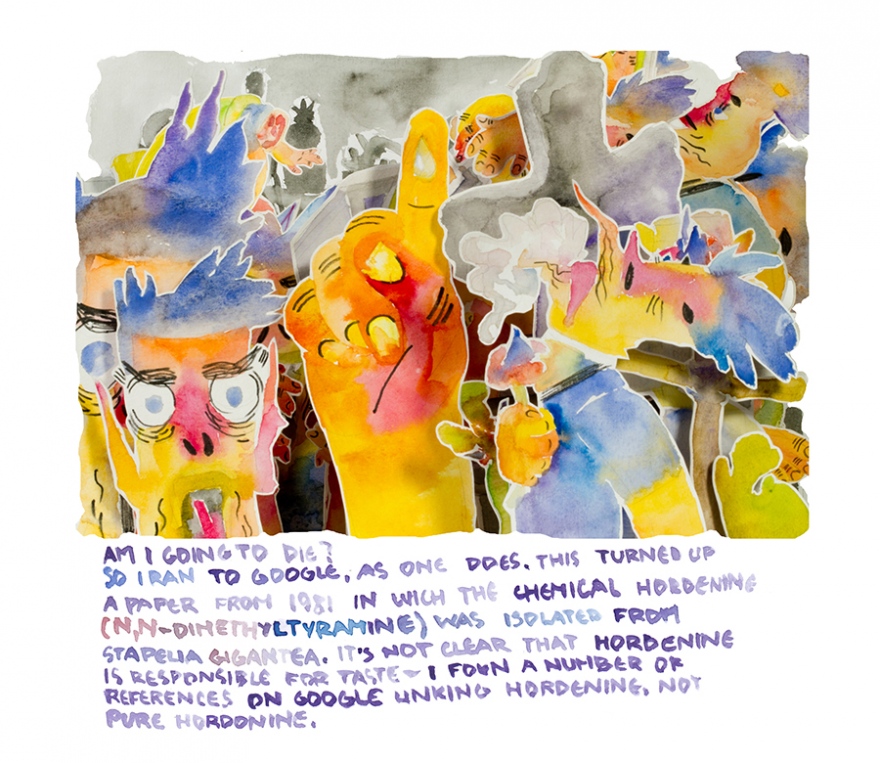 AM I GOING TO DIE?
SO I RAN TO GOOGLE, AS ONE DOES. THIS TURNED UP
A PAPER FROM 1981 IN WICH THE CHEMICAL HORDENINE
(N,N-DIMETHYLTYRAMINE) WAS ISOLATED FROM
STAPELIA GIGANTEA. IT'S NOT CLEAR THAT HORDENINE
IS RESPONSIBLE FOR TASTE - I FOWN A NUMBER OF
REFERENCES ON GOOGLE LINKING HORDENINE, NOT
PURE HORDONINE.